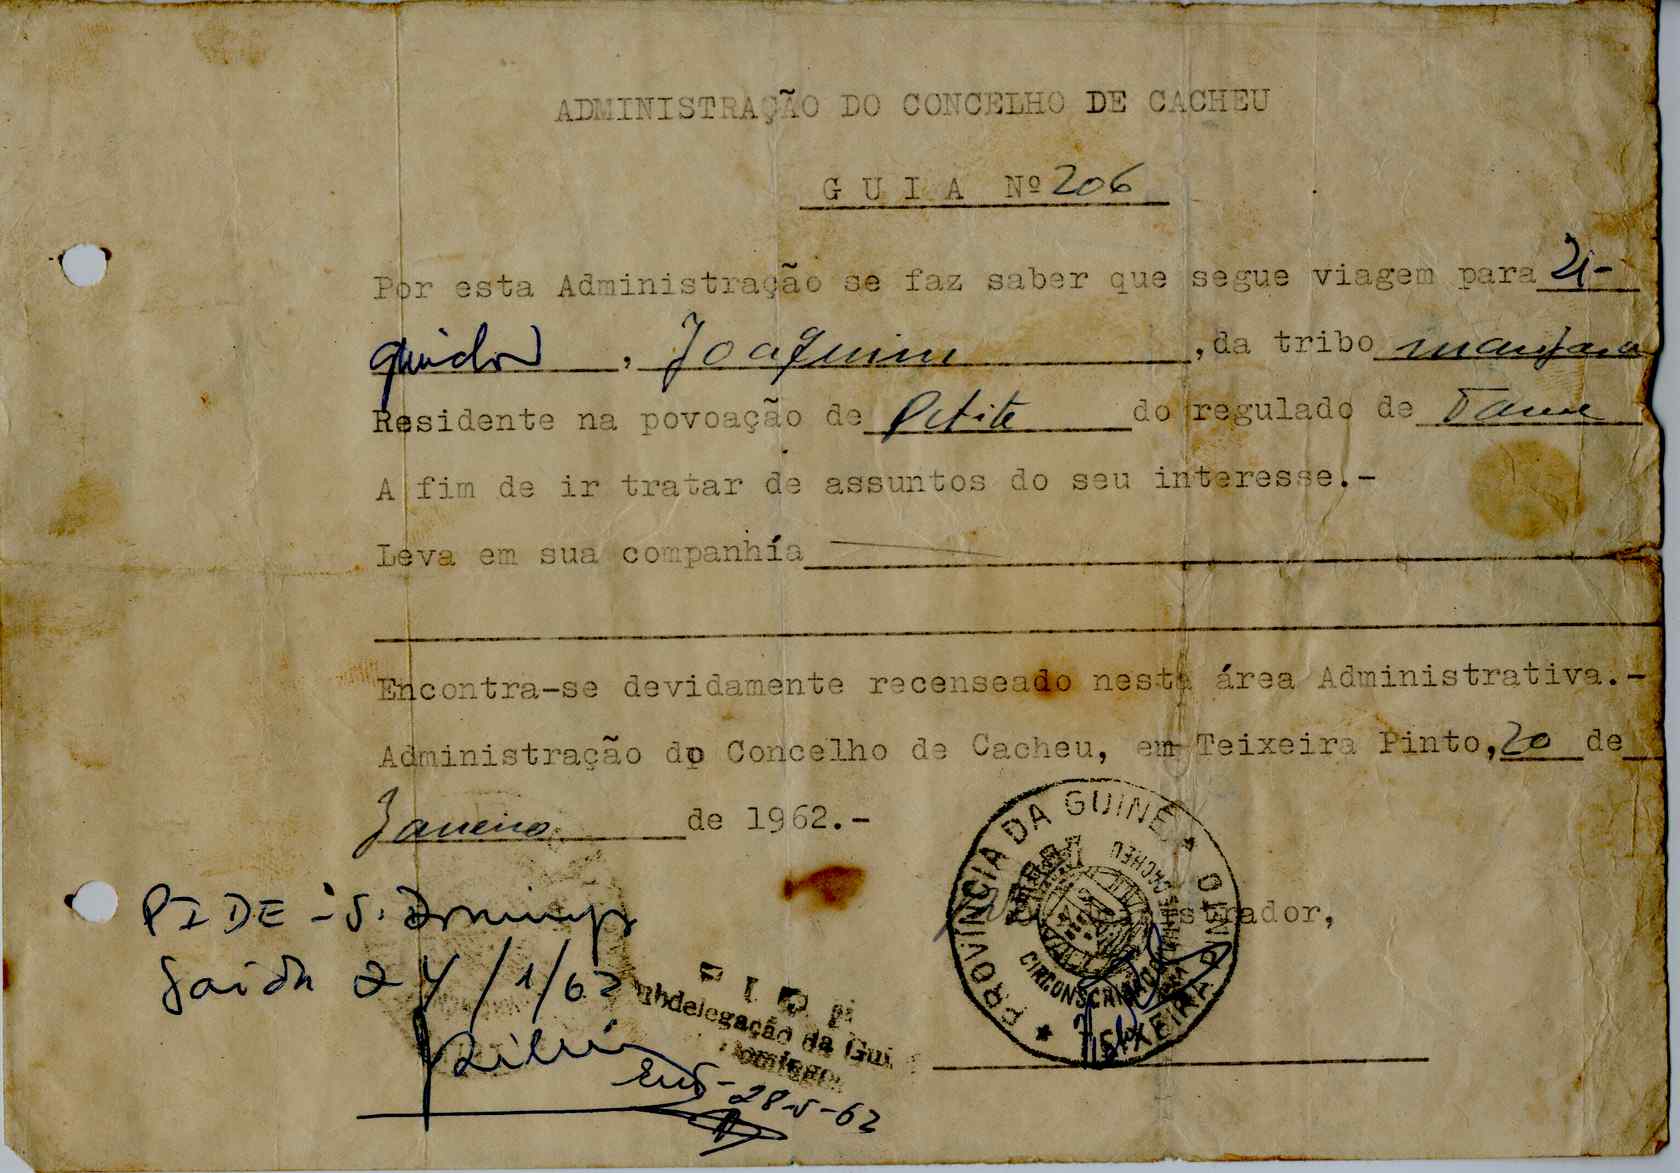 ADMINISTRAÇÃO DO CONCELHO DE CACHEU
GUIA Nº 206
Por esta Administração se faz saber que segue viagem para Zi-
guidor, Joaquim, da tribo manjaca
Residente na povoação de Petite do regulado de Tame
A fim de ir tratar de assuntos do seu interesse.-
Leva em sua companhía
Encontra-se devidamente recenseado nesta área Administrativa.-
Administração do Concelho de Cacheu, em Teixeira Pinto, 20 de
Janeiro de 1962.-
PROVINCIA DA GUINÉ * TEIXEIRA PINTO *
CIRCONSCRIÇÃO CACHEU
strador,
PIDE - S. Domingos
Saida 24/1/62
PIDE
Subdelegação da Gui
Domingos
28-5-62